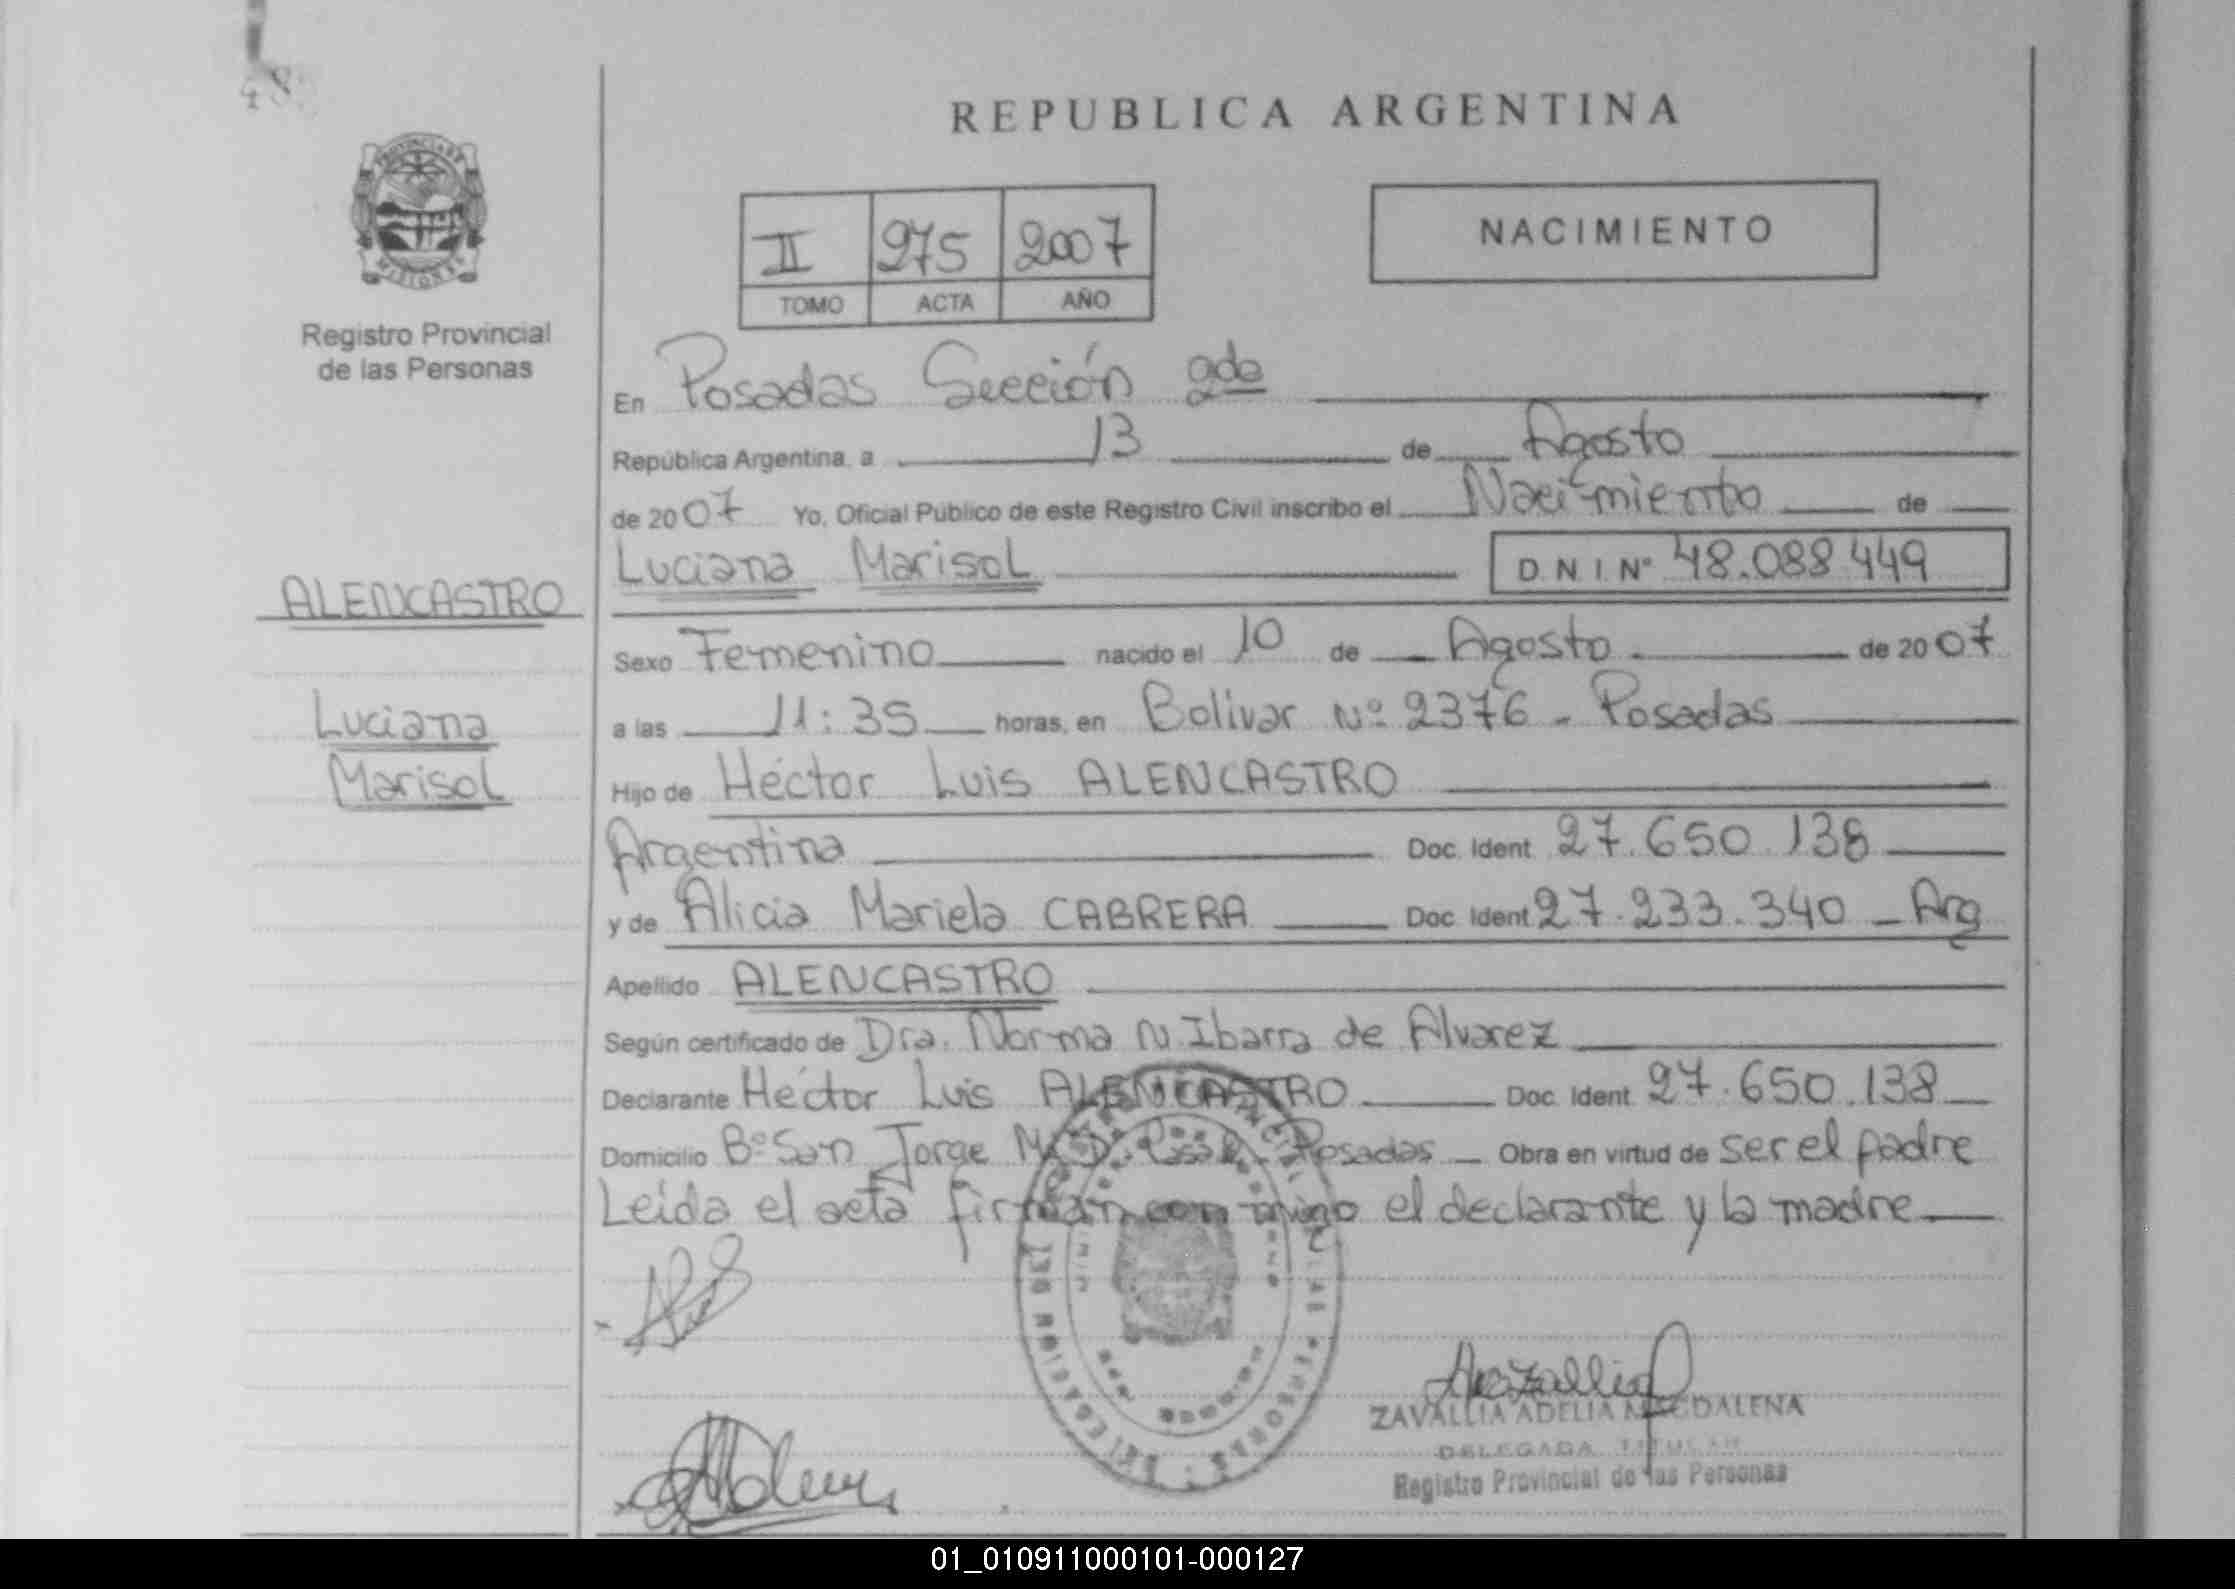 48
REPUBLICA ARGENTINA
PROVINCIA DE
MISIONES
Registro Provincial
de las Personas
II 275 2007
TOMO ACTA AÑO
NACIMIENTO
En Posadas Sección 2da
República Argentina, a 13 de Agosto
de 2007 Yo, Oficial Público de este Registro Civil inscribo el Nacimiento de
Luciana Marisol D.N.I. Nº 48.088.449
ALENCASTRO
Luciana
Marisol
Sexo Femenino nacido el 10 de Agosto de 2007
a las 11:35 horas, en Bolivar Nº 2376 - Posadas
Hijo de Héctor Luis ALENCASTRO
Argentina Doc. Ident. 27.650.138
y de Alicia Mariela CABRERA Doc. Ident 27.233.340 - Arg
Apellido ALENCASTRO
Según certificado de Dra. Norma N. Ibarra de Alvarez
Declarante Héctor Luis ALENCASTRO Doc. Ident. 27.650.138
Domicilio Bº San Jorge Posadas Obra en virtud de ser el padre
Leída el acta firman con migo el declarante y la madre
ZAVALLIA ADELIA MAGDALENA
DELEGADA TITULAR
Registro Provincial de las Personas
01_010911000101-000127